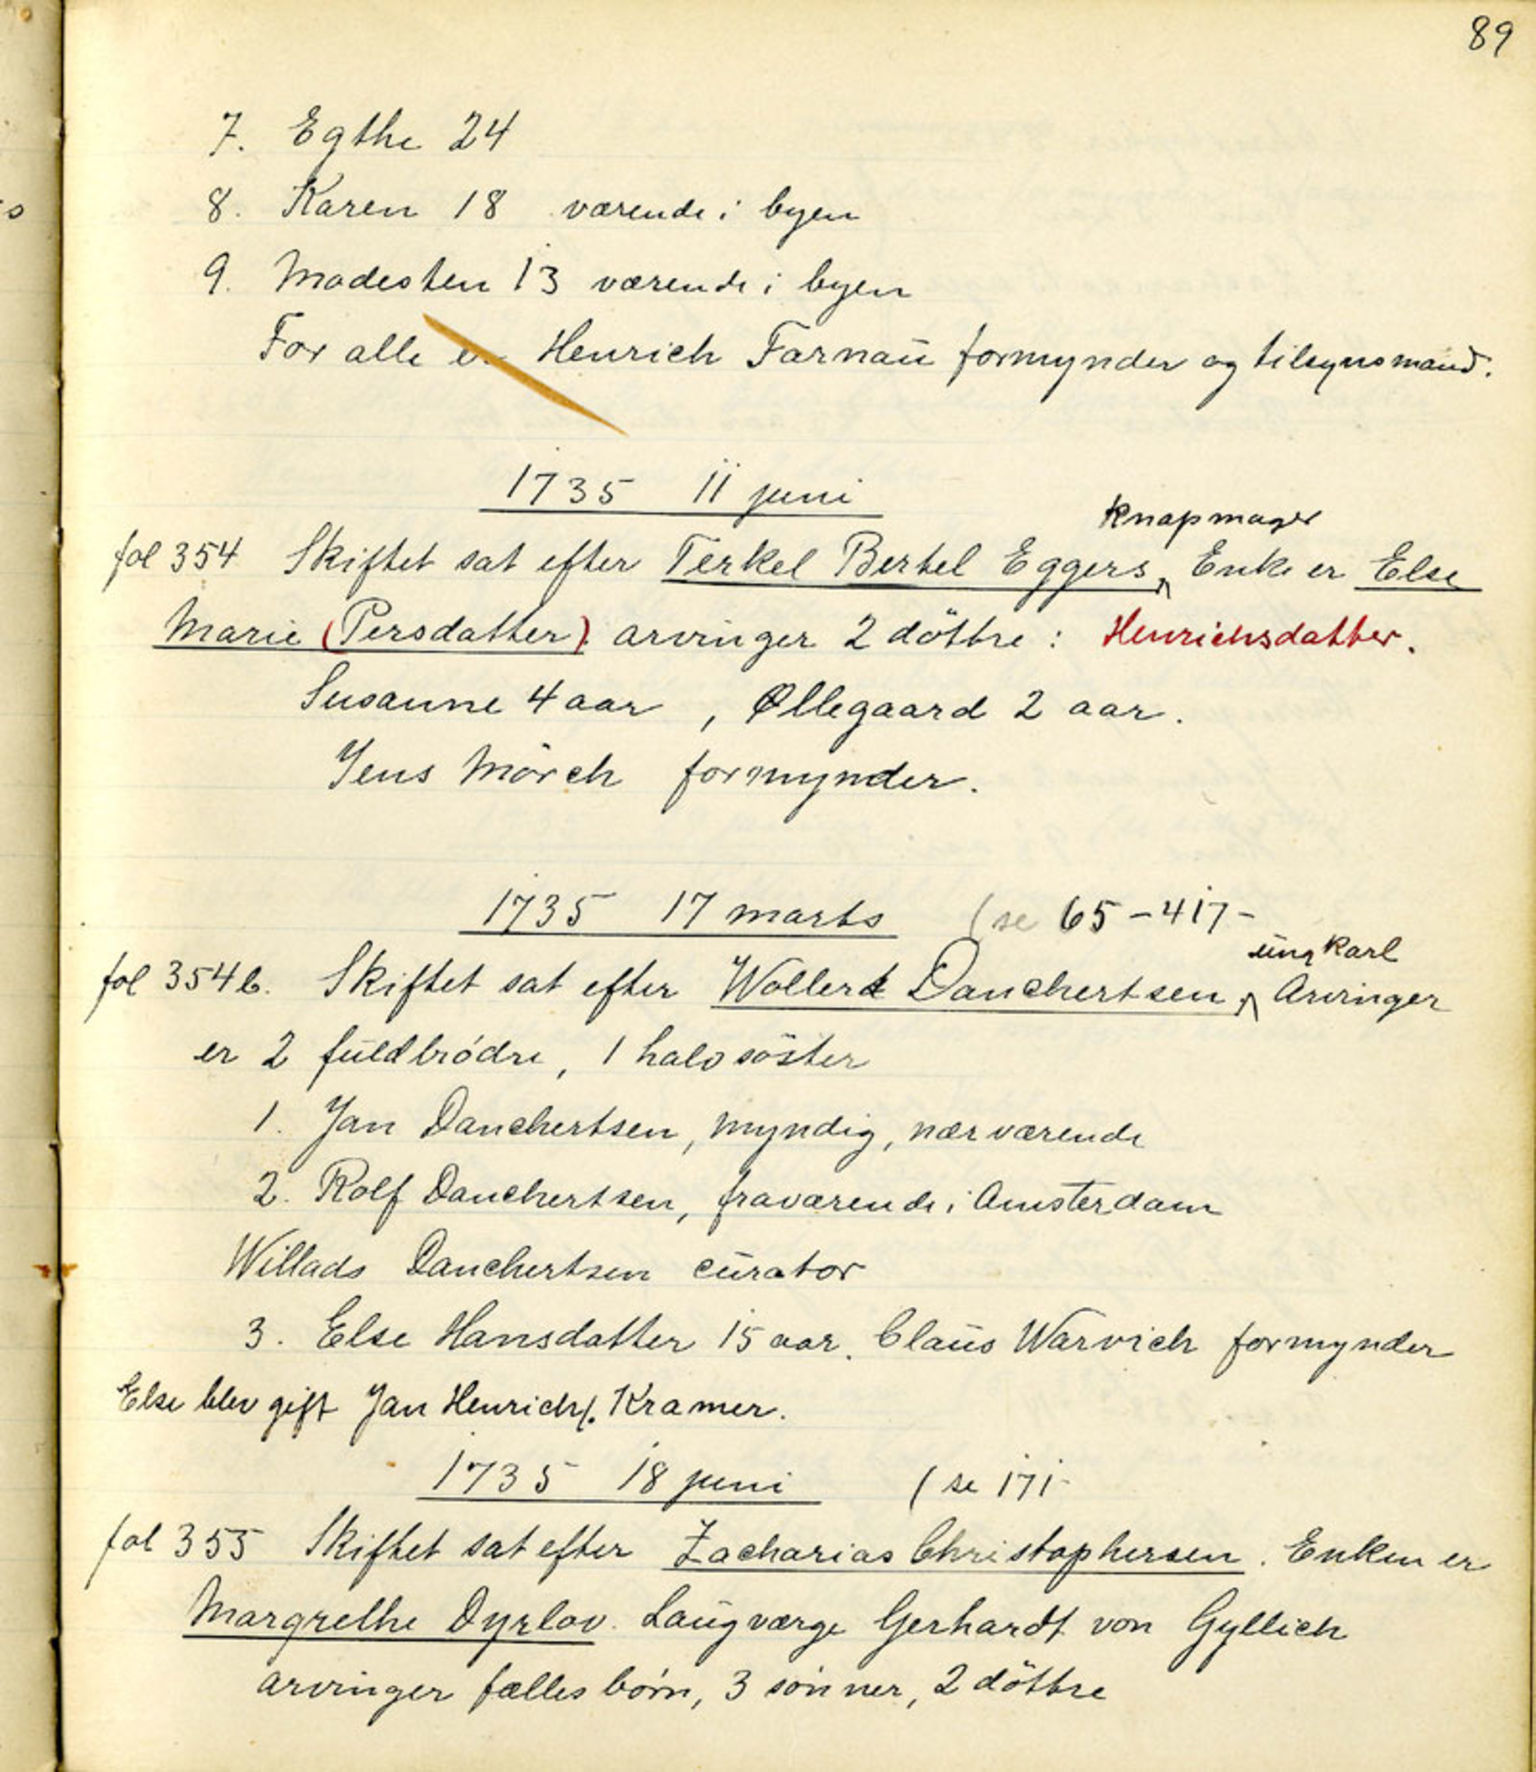 89
7. Egthe 24
8. Karen 18 værende i byen
9. Modesten 13 værende i byen
For alle er Henrich Farnaŭ formynder og tilsynsmand.
1735 11 juni
Knapmager
fol 354 Skiftet sat efter Terkel Bertel Eggers, Enke er Else
Marie (Persdatter) arvinger 2 döttre : Henrichsdatter.
Susanne 4 aar , Øllegaard 2 aar.
Jens Mörch formynder.
1735 17 marts (se 65-417-
ŭng karl
fol 354b. Skiftet sat efter Wollert Danchertsen, Arvinger
er 2 fŭldbródre, 1 halvsöster
1. Jan Danchertsen, myndig, nærværende
2. Rolf Danchertsen, fraværende i Amsterdam
Willads Danchertsen cŭrator
3. Else Hansdatter 15 aar. Claŭs Warvich formynder
Else blev gift Jan Henrich. Kramer.
1735 18 juni (se 171-
fol 355 Skiftet sat efter Zacharias Christophersen. Enken er
Margrethe Dyrlov. Laŭgværge Gerhardt von Gyllich
arvinger fælles börn, 3 sönner, 2 döttre